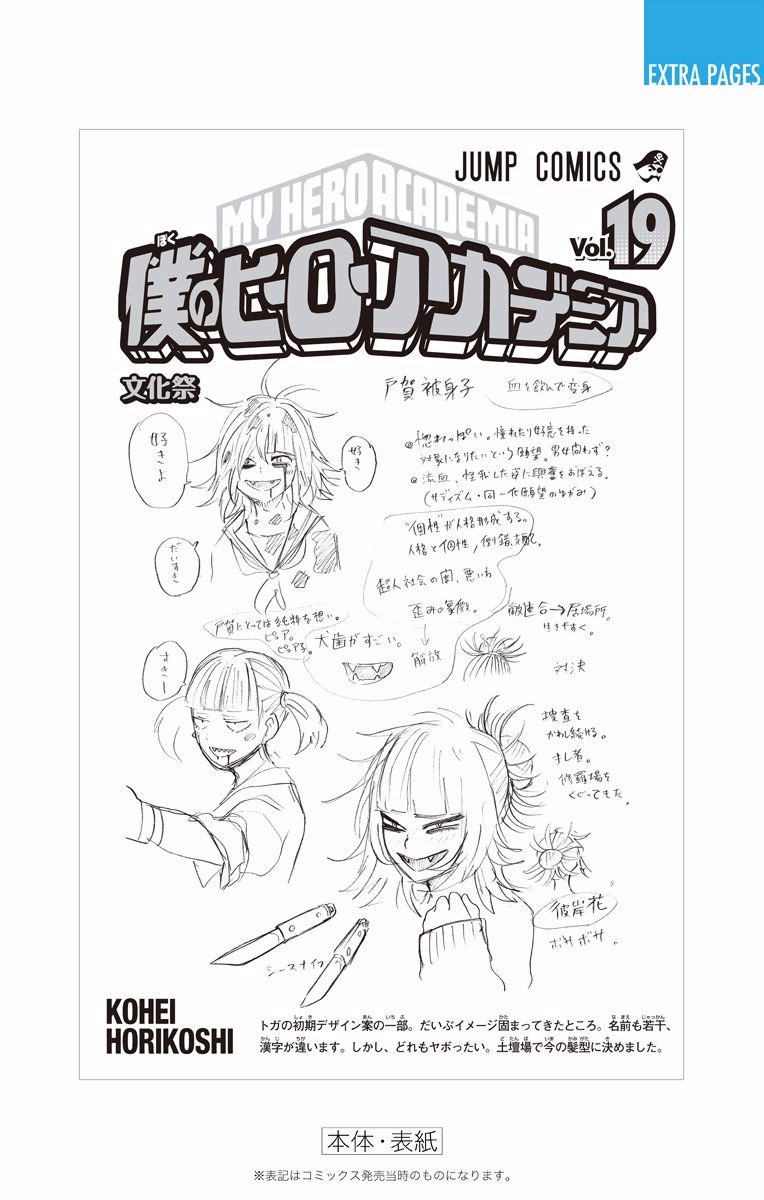 EXTRA PAGES
JUMP COMICS
MY HERO ACADEMIA
Vol.19
僕のヒーローアカデミア
ぼく
文化祭
戸賀 被身子
血を飲んで変身
好きよ
好き
だいすき
@惚れっぽい。憧れたり好意を持った
対象になりたいという願望。男女問わず?
@流血、
した姿に興奮をおぼえる。
(サディズム・同一化願望のゆがみ)
"個性"が人格形成する。
人格と個性ノ倒錯支配。
超人社会の闇、悪い方
歪みの象徴。
↓
解放
敵連合→居場所。
生きやすく。
対決
戸賀にとっては純粋な想い。
ピュア。
ピュア子。
犬歯がすごい。
すきー
捜査を
かわし続ける。
キレ者。
修羅場を
くぐってきた。
彼岸花
ボサボサ。
シースナイフ
KOHEI
HORIKOSHI
トガの初期デザイン案の一部。だいぶイメージ固まってきたところ。名前も若干、
漢字が違います。しかし、どれもヤボったい。土壇場で今の髪型に決めました。
本体・表紙
※表記はコミックス発売当時のものになります。